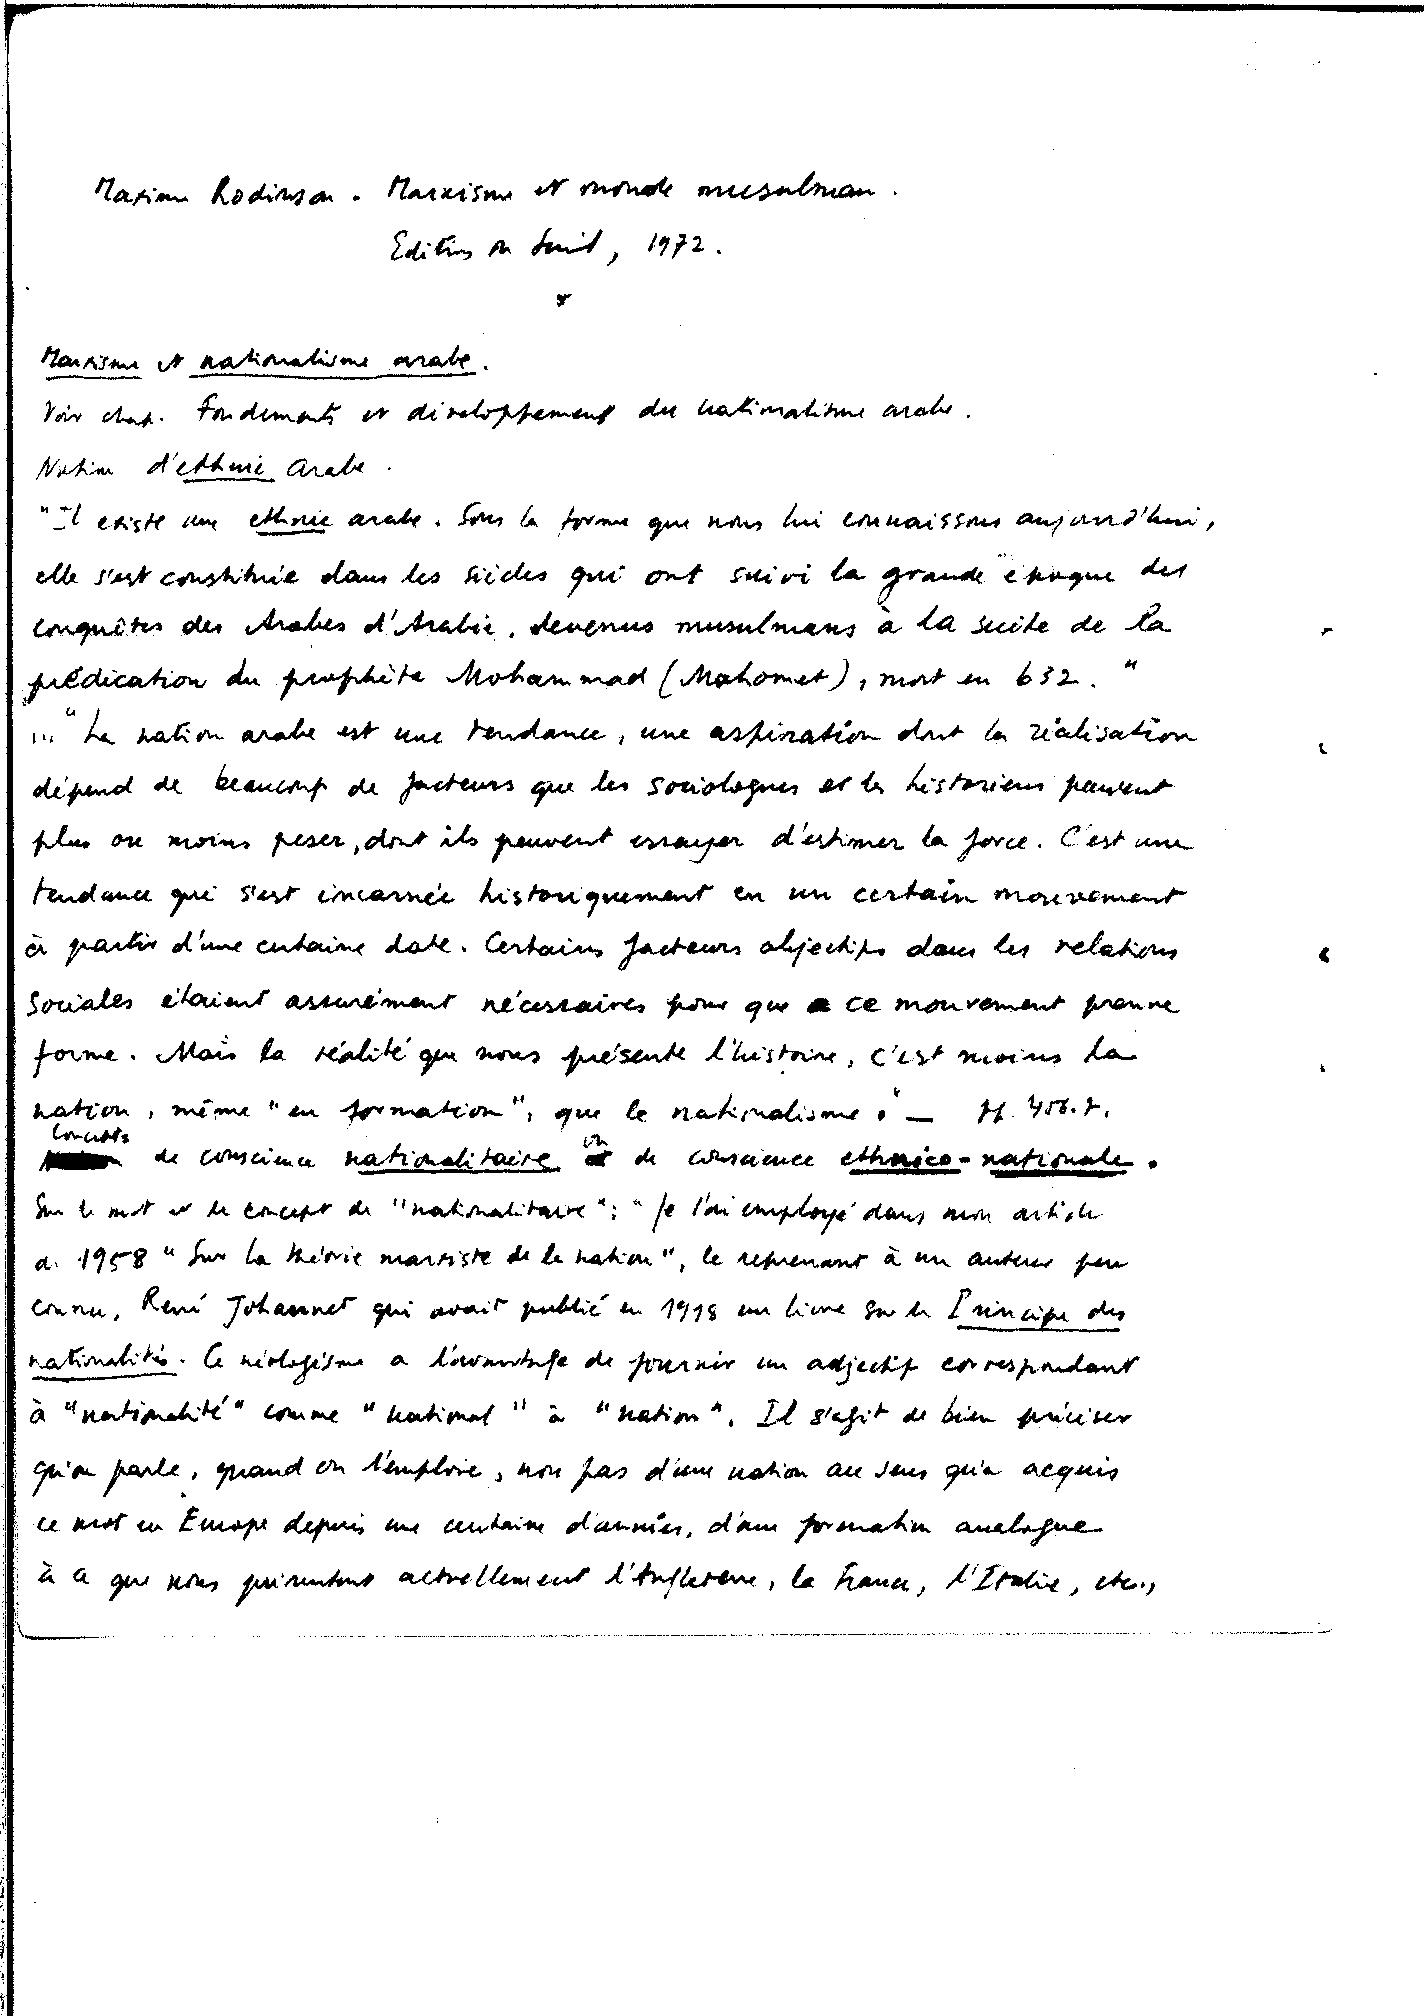 Maxime Rodinson. Marxisme et monde musulman.
Editions du Seuil, 1972.
*
Marxisme et nationalisme arabe.
Voir chap. Fondements et développement du nationalisme arabe.
Notion d'ethnie arabe.
"Il existe une ethnie arabe. Sous la forme que nous lui connaissons aujourd'hui,
elle s'est constituée dans les siècles qui ont suivi la grande époque des
conquêtes des Arabes d'Arabie, devenus musulmans à la suite de la
prédication du prophète Mohammad (Mahomet), mort en 632."
..." La nation arabe est une tendance, une aspiration dont la réalisation
dépend de beaucoup de facteurs que les sociologues et les historiens peuvent
plus ou moins peser, dont ils peuvent essayer d'estimer la force. C'est une
tendance qui s'est incarnée historiquement en un certain mouvement
à partir d'une certaine date. Certains facteurs objectifs dans les relations
sociales étaient assurément nécessaires pour que ce mouvement prenne
forme. Mais la réalité que nous présente l'histoire, c'est moins la
nation, même "en formation", que le nationalisme." —
Concepts
de conscience nationalitaire ou de conscience ethnico-nationale.
Sur le mot et le concept de "nationalitaire": "Je l'ai employé dans mon article
de 1958 "Sur la théorie marxiste de la nation", le reprenant à un auteur peu
connu, René Johannet qui avait publié en 1918 un livre sur le Principe des
nationalités. Ce néologisme a l'avantage de fournir un adjectif correspondant
à "nationalité" comme "national" à "nation". Il s'agit de bien préciser
qu'on parle, quand on l'emploie, non pas d'une nation au sens qu'a acquis
ce mot en Europe depuis une centaine d'années, d'une formation analogue
à ce que nous présentent actuellement l'Angleterre, la France, l'Italie, etc.,